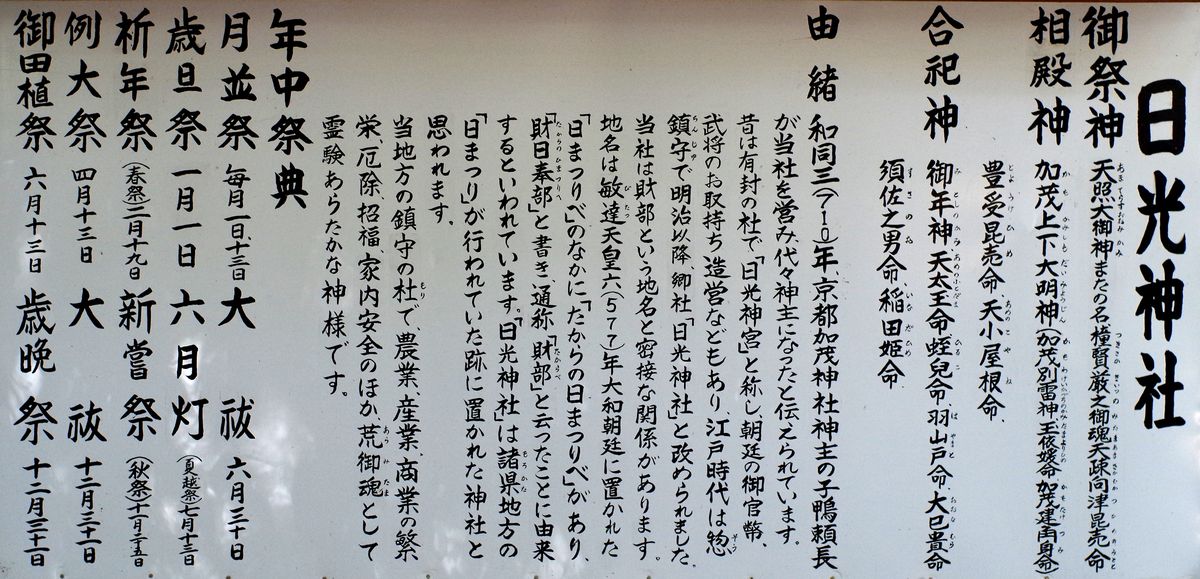 日光神社
御祭神 天照大御神またの名撞賢厳之御魂天疎向津毘売命
相殿神 加茂上下大明神(加茂別雷神、玉依媛命、加茂建角身命)
豊受毘売命、天小屋根命、
合祀神 御年神、天太王命、蛭兒命、羽山戸命、大巳貴命
須佐之男命、稲田姫命
由緒 和同三(710)年、京都加茂神社神主の子鴨頼長
が当社を営み、代々神主になったと伝えられています。
昔は有封の社で「日光神宮」と称し、朝廷の御官幣、
武将のお取持ち、造営などもあり、江戸時代は惣
鎮守で明治以降、郷社「日光神社」と改められました。
当社は財部という地名と密接な関係があります。
地名は敏達天皇六(577)年大和朝廷に置かれた
「日まつりべ」のなかに「たからの日まつりべ」があり、
「財日奉部」と書き、通称「財部」と云ったことに由来
するといわれています。「日光神社」は諸県地方の
「日まつり」が行われていた跡に置かれた神社と
思われます。
当地方の鎮守の杜で、農業、産業、商業の繁
栄、厄除、招福、家内安全のほか、荒御魂として
霊験あらたかな神様です。
年中祭典
月並祭 毎月一日、十三日 大祓 六月三十日
歳旦祭 一月一日 六月灯 (夏越祭)七月十三日
祈年祭 (春祭)二月十九日 新嘗祭 (秋祭)十一月二十五日
例大祭 四月十三日 大祓 十二月三十一日
御田植祭 六月十三日 歳晩祭 十二月三十一日